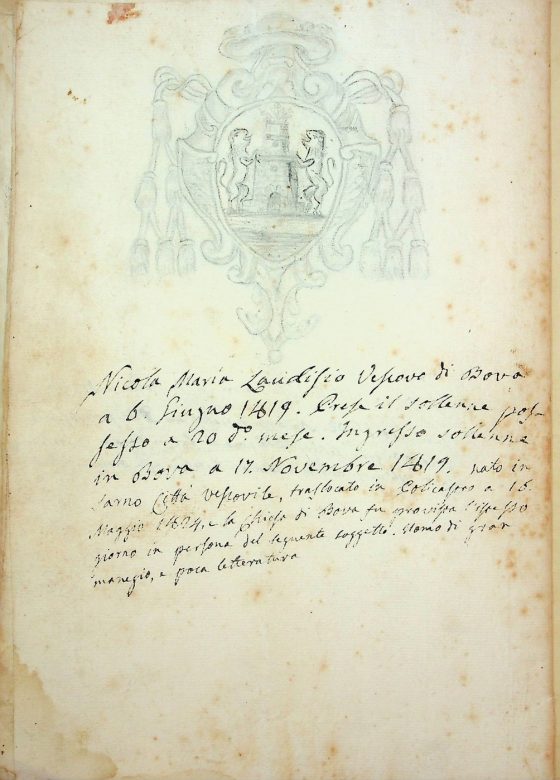 Nicola Maria Laudisio Vescovo di Bova
a 6. Giugno 1819. Prese il sollenne pos-
sesso a 20 do. mese. Ingresso sollenne
in Bova a 17. Novembre 1819. nato in
Sarno Città vescovile, traslocato in Policastro a 16.
Maggio 1824, e la Chiesa di Bova fu provista l'istesso
giorno in persona del seguente soggetto. Uomo di gran
manegio, e poca letteratura